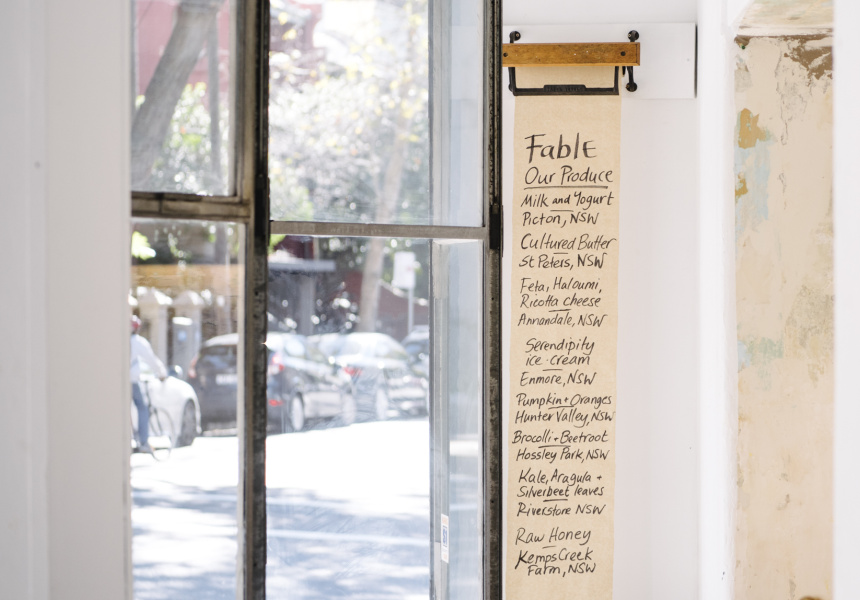 Fable
Our Produce
Milk and Yogurt
Picton, NSW
Cultured Butter
St Peters, NSW
Feta, Haloumi,
Ricotta cheese
Annandale, NSW
Serendipity
ice-cream
Enmore, NSW
Pumpkin + Oranges
Hunter Valley, NSW
Brocolli + Beetroot
Hossley Park, NSW
Kale, Aragula +
Silverbeet leaves
Riverstone NSW
Raw Honey
Kemps Creek
Farm, NSW